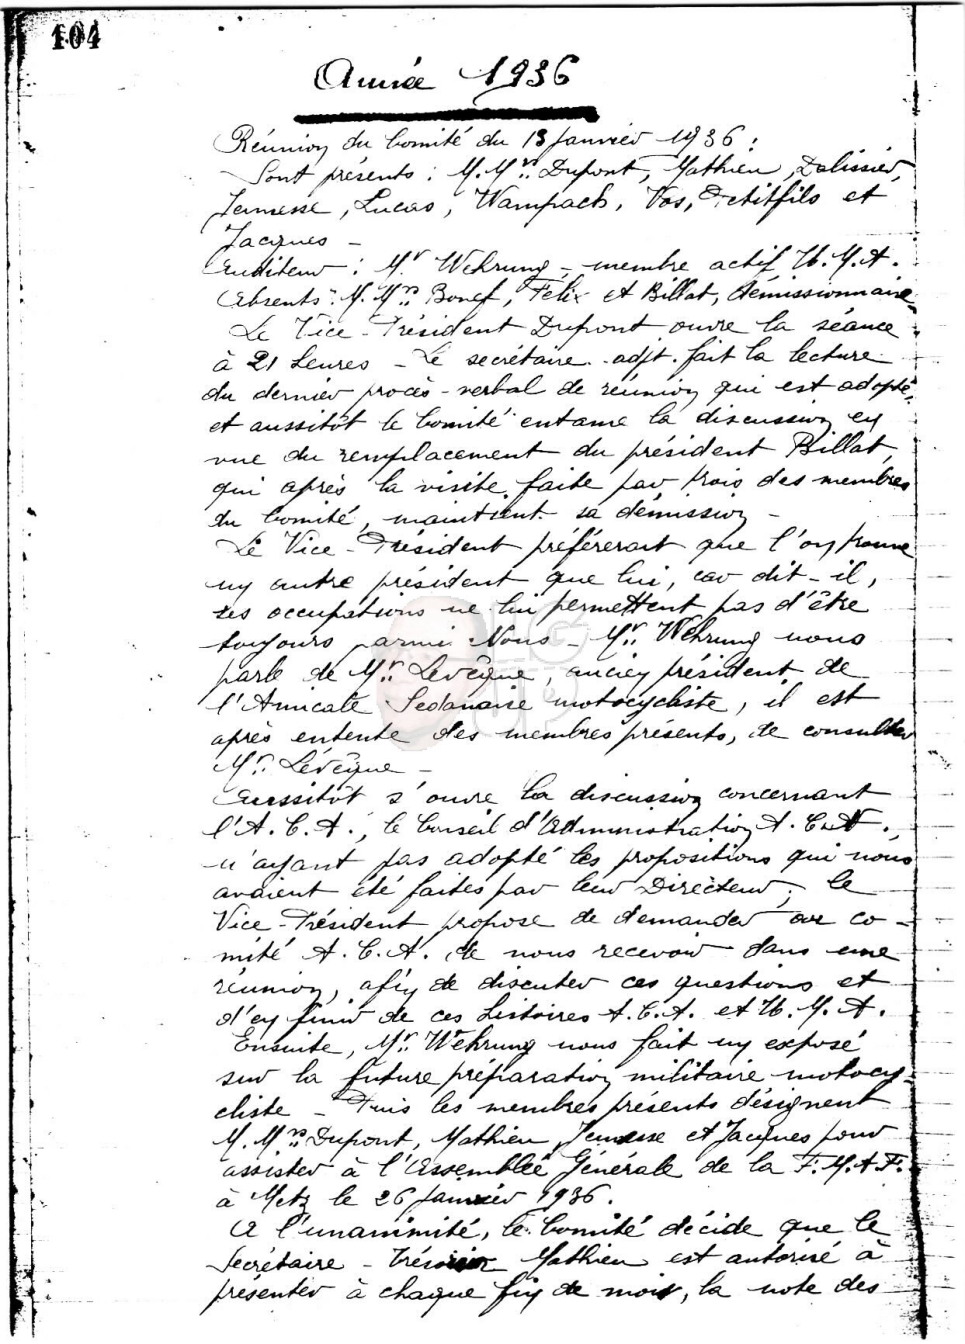 104
Année 1936
Réunion du Comité du 13 Janvier 1936 :
Sont présents : M.Mrs. Dupont, Mathieu, Dalissier,
Jeunesse, Lucas, Wampach, Vos, Petitfils et
Jacques –
Auditeur : Mr Wehrung – membre actif U.M.A.
Absents : M.Mrs Bonef, Félix et Billat, démissionnaire.
Le Vice-Président Dupont ouvre la séance
à 21 heures – Le secrétaire-adjt. fait la lecture
du dernier procès-verbal de réunion qui est adopté,
et aussitôt le Comité entame la discussion en
vue du remplacement du président Billat,
qui après la visite faite par trois des membres
du Comité, maintient sa démission –
Le Vice-Président préférerait que l'on trouve
un autre président que lui, car dit-il,
ses occupations ne lui permettent pas d'être
toujours parmi Nous – Mr. Wehrung nous
parle de Mr. Levêque, ancien président de
l'Amicale Sedanaise motocycliste, il est
après entente des membres présents, de consulter
Mr. Levêque –
Aussitôt s'ouvre la discussion concernant
l'A.C.A., le Conseil d'Administration A.C.A.,
n'ayant pas adopté les propositions qui nous
avaient été faites par leur Directeur ; le
Vice-Président propose de demander au co-
mité A.C.A. de nous recevoir dans une
réunion, afin de discuter ces questions et
d'en finir de ces histoires A.C.A. et U.M.A.
Ensuite, Mr. Wehrung nous fait un exposé
sur la future préparation militaire motocy-
cliste – Puis les membres présents désignent
M.Mrs Dupont, Mathieu, Jeunesse et Jacques pour
assister à l'Assemblée Générale de la F.M.A.F.
à Metz le 26 Janvier 1936.
A l'unanimité, le Comité décide que le
Secrétaire-Trésorier Mathieu est autorisé à
présenter à chaque fin de mois, la note des